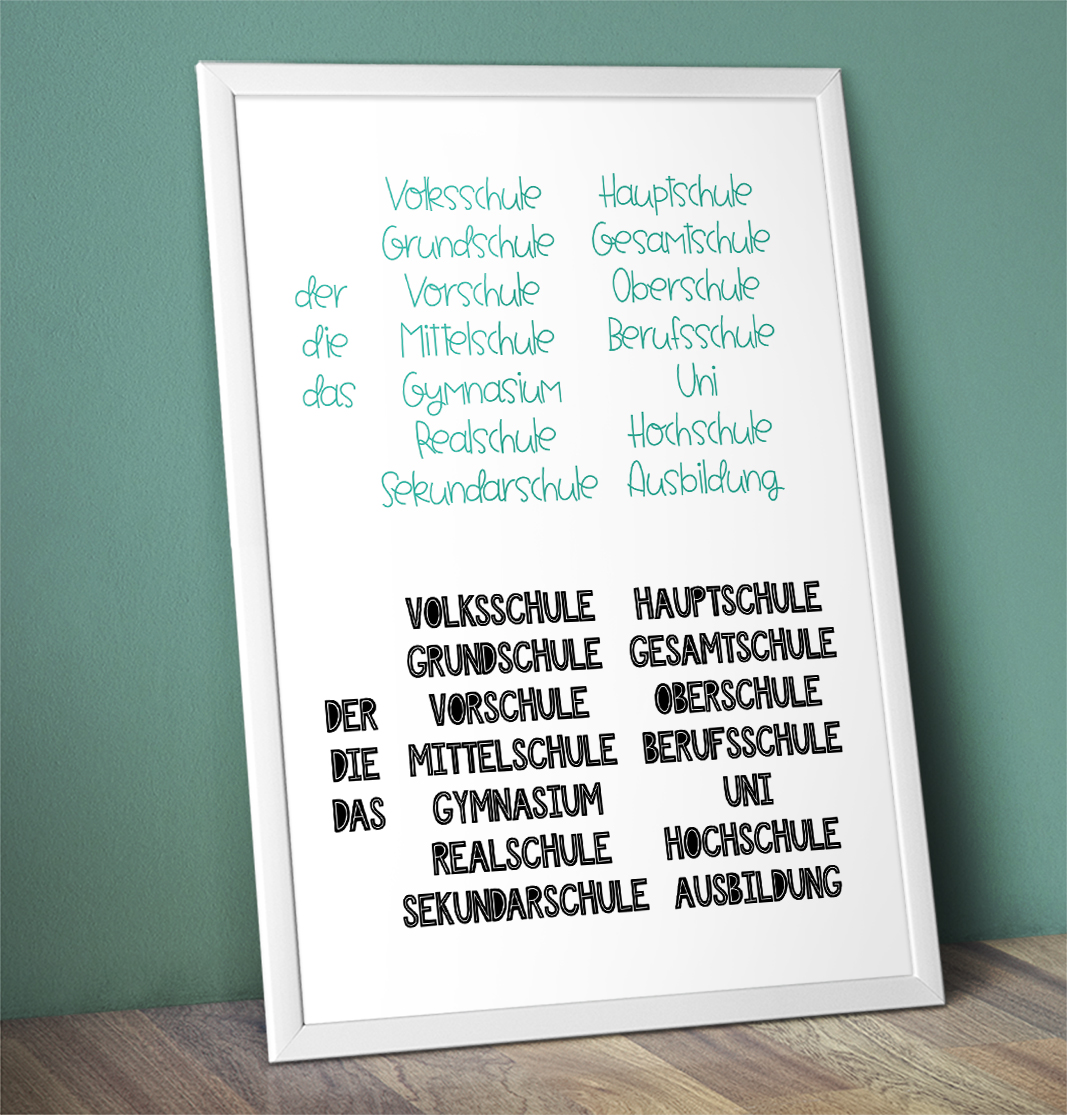 Volksschule Hauptschule
Grundschule Gesamtschule
der Vorschule Oberschule
die Mittelschule Berufsschule
das Gymnasium Uni
Realschule Hochschule
Sekundarschule Ausbildung
VOLKSSCHULE HAUPTSCHULE
GRUNDSCHULE GESAMTSCHULE
DER VORSCHULE OBERSCHULE
DIE MITTELSCHULE BERUFSSCHULE
DAS GYMNASIUM UNI
REALSCHULE HOCHSCHULE
SEKUNDARSCHULE AUSBILDUNG